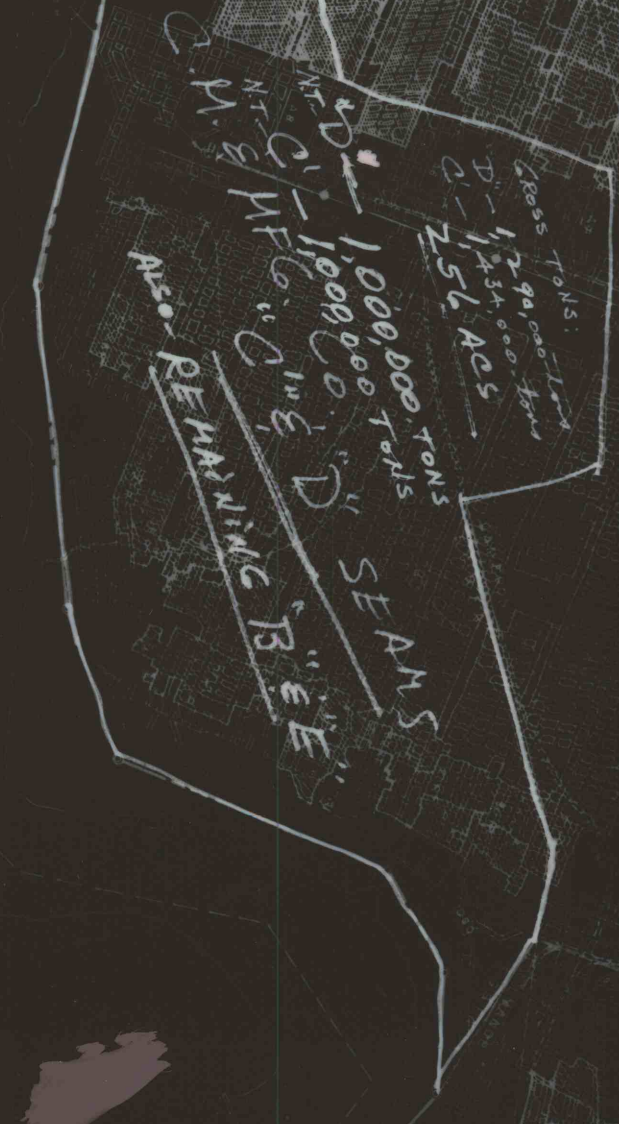 GROSS TONS:
"D" - 1,290,000 tons
"C" - 1,434,000 tons
256 ACS
NT- "D" - 1,000,000 TONS
NT- "C" - 1,000,000 TONS
C. M. & MFG. CO.
"C" & "D" SEAMS
ALSO- REMAINING "B" & "E"